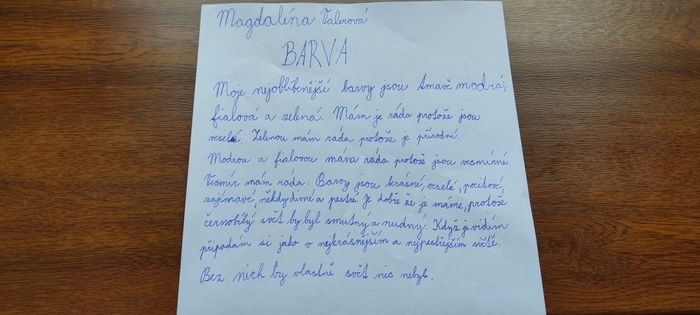 Magdaléna Valerová
BARVA
Moje nejoblíbenější barvy jsou tmavě modrá,
fialová a zelená. Mám je ráda protože jsou
veselé. Zelenou mám ráda protože je přírodní.
Modrou a fialovou mám ráda protož jsou vesmírné.
Vesmír mám ráda. Barvy jsou krásné, veselé, pocitové,
zajímavé, někdy divné a pestré. Je dobře že je máme, protože
černobílý svět by byl smutný a nudný. Když je vidím
připadám si jako v nejkrásnějším a nejpestřejším světě.
Bez nich by vlastně svět nic nebyl.